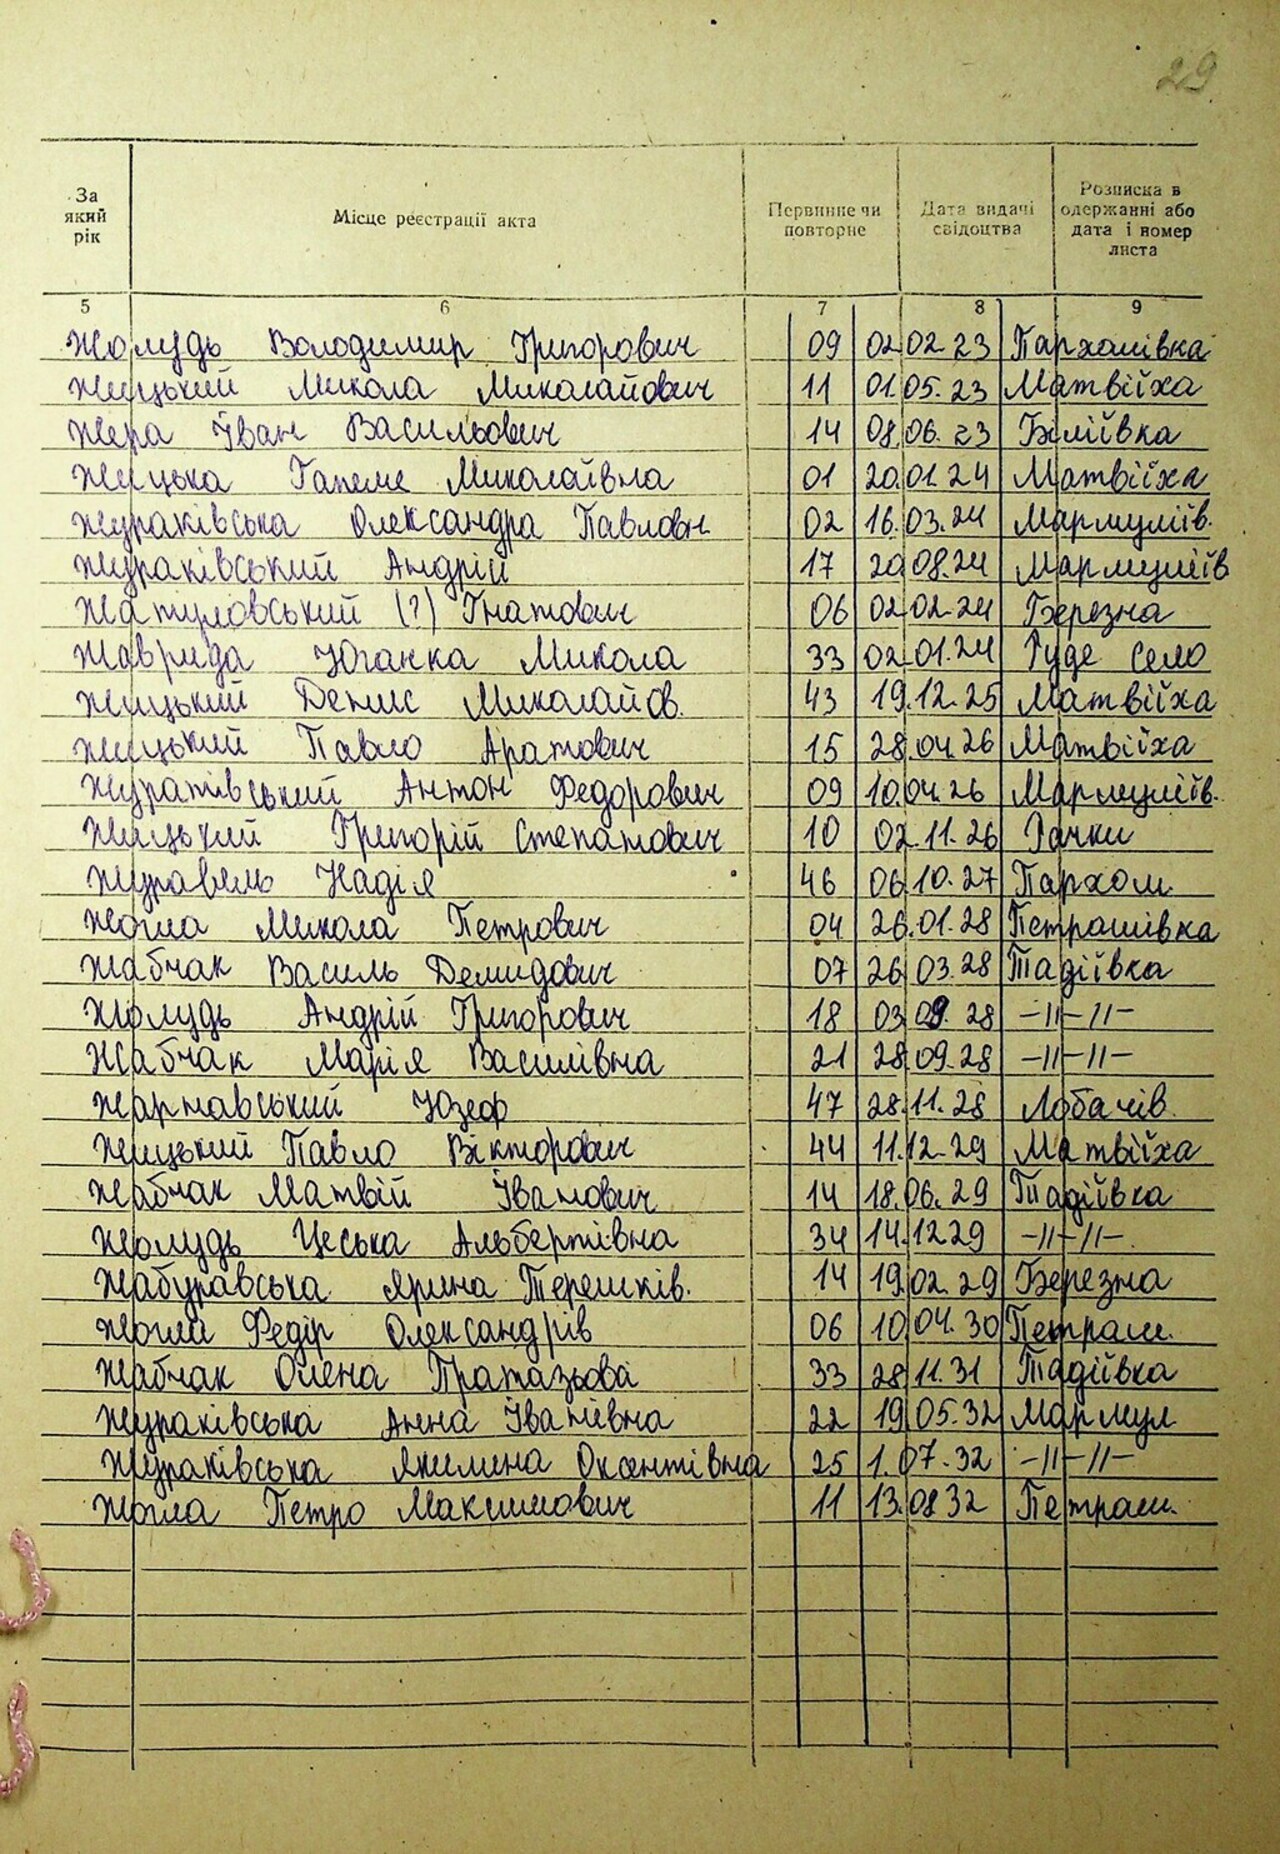 29
За який рік Місце реєстрації акта Первинне чи повторне Дата видачі свідоцтва Розписка в одержанні або дата і номер листа
5 6 7 8 9
Жолудь Володимир Григорович 09 02.02.23 Пархомівка
Жицький Микола Миколайович 11 01.05.23 Матвіїха
Жера Іван Васильович 14 08.06.23 Біліївка
Жицька Миколаївна 01 20.01.24 Матвіїха
Жураківська Олександра Павловн. 02 16.03.24 Мармуліїв.
Жураківський Андрій 17 20.08.24 Мармуліїв
Жатуловський (?) Гнатович 06 02.02.24 Березна
Жаврида Юганка Микола 33 02.01.24 Руде село
Жицький Денис Миколайов. 43 19.12.25 Матвіїха
Жицький Павло 15 28.04.26 Матвіїха
Журатівський Антон Федорович 09 10.04.26 Мармуліїв.
Жицький Григорій Степанович 10 02.11.26 Рачки
Журавель Надія 46 06.10.27 Пархом.
Жогла Микола Петрович 04 26.01.28 Петрашівка
Жабчак Василь Демидович 07 26.03.28 Тадіївка
Жолудь Андрій Григорович 18 03.09.28 -//-//-
Жабчак Марія Василівна 21 28.09.28 -//-//-
Жарнавський Юзеф 47 28.11.28 Лобачів
Жицький Павло Вікторович 44 11.12.29 Матвіїха
Жабчак Матвій Іванович 14 18.06.29 Тадіївка
Жолудь Цеська Альбертівна 34 14.12.29 -//-//-
Жабуравська Ярина Терешків. 14 19.02.29 Березна
Жогла Федір Олександрів 06 10.04.30 Петраш.
Жабчак Олена 33 28.11.31 Тадіївка
Жураківська Анна Іванівна 22 19.05.32 Мармул
Жураківська Якилина Оксентівна 25 1.07.32 -//-//-
Жогла Петро Максимович 11 13.08.32 Петраш.